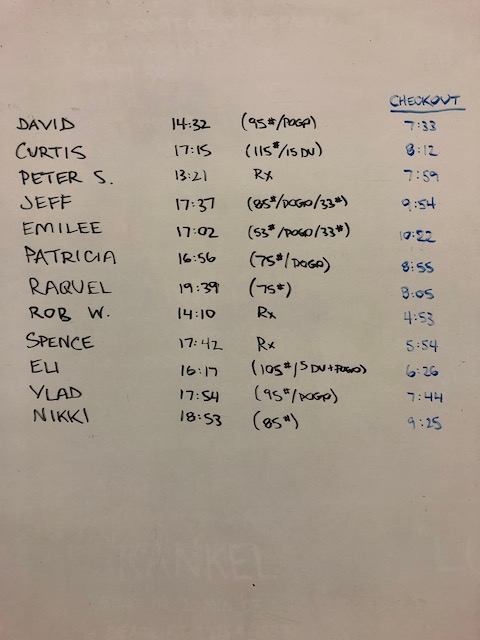 CHECKOUT
DAVID 14:32 (95#/POGO) 7:33
CURTIS 17:15 (115#/15 DU) 8:12
PETER S. 13:21 Rx 7:59
JEFF 17:37 (85#/POGO/33#) 9:54
EMILEE 17:02 (53#/POGO/33#) 10:22
PATRICIA 16:56 (75#/POGO) 8:55
RAQUEL 19:39 (75#) 8:05
ROB W. 14:10 Rx 4:53
SPENCE 17:42 Rx 5:54
ELI 16:17 (105#/5 DU+POGO) 6:26
VLAD 17:54 (95#/POGO) 7:44
NIKKI 18:53 (85#) 9:25